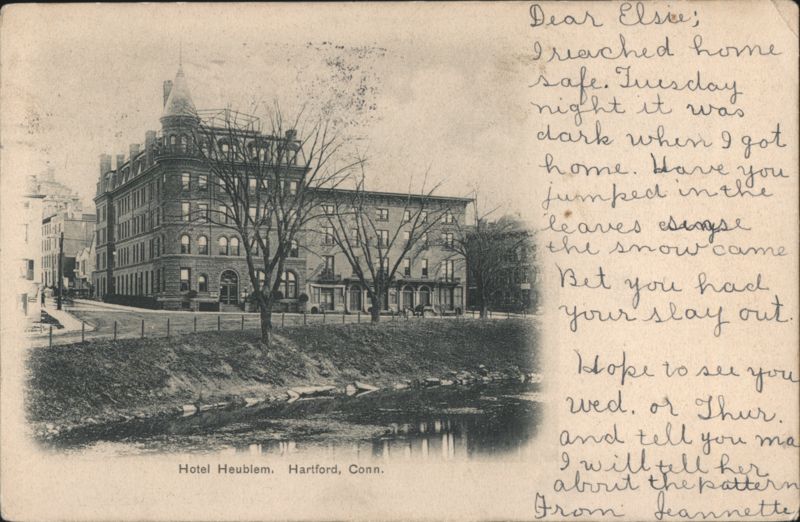 Dear Elsie;
I reached home
safe. Tuesday
night it was
dark when I got
home. Have you
jumped in the
leaves singse
the snow came
Bet you had
your slay out.
Hope to see you
wed. or Thur.
and tell you ma
I will tell her
about the pattern
From Jeannette
Hotel Heublem. Hartford, Conn.